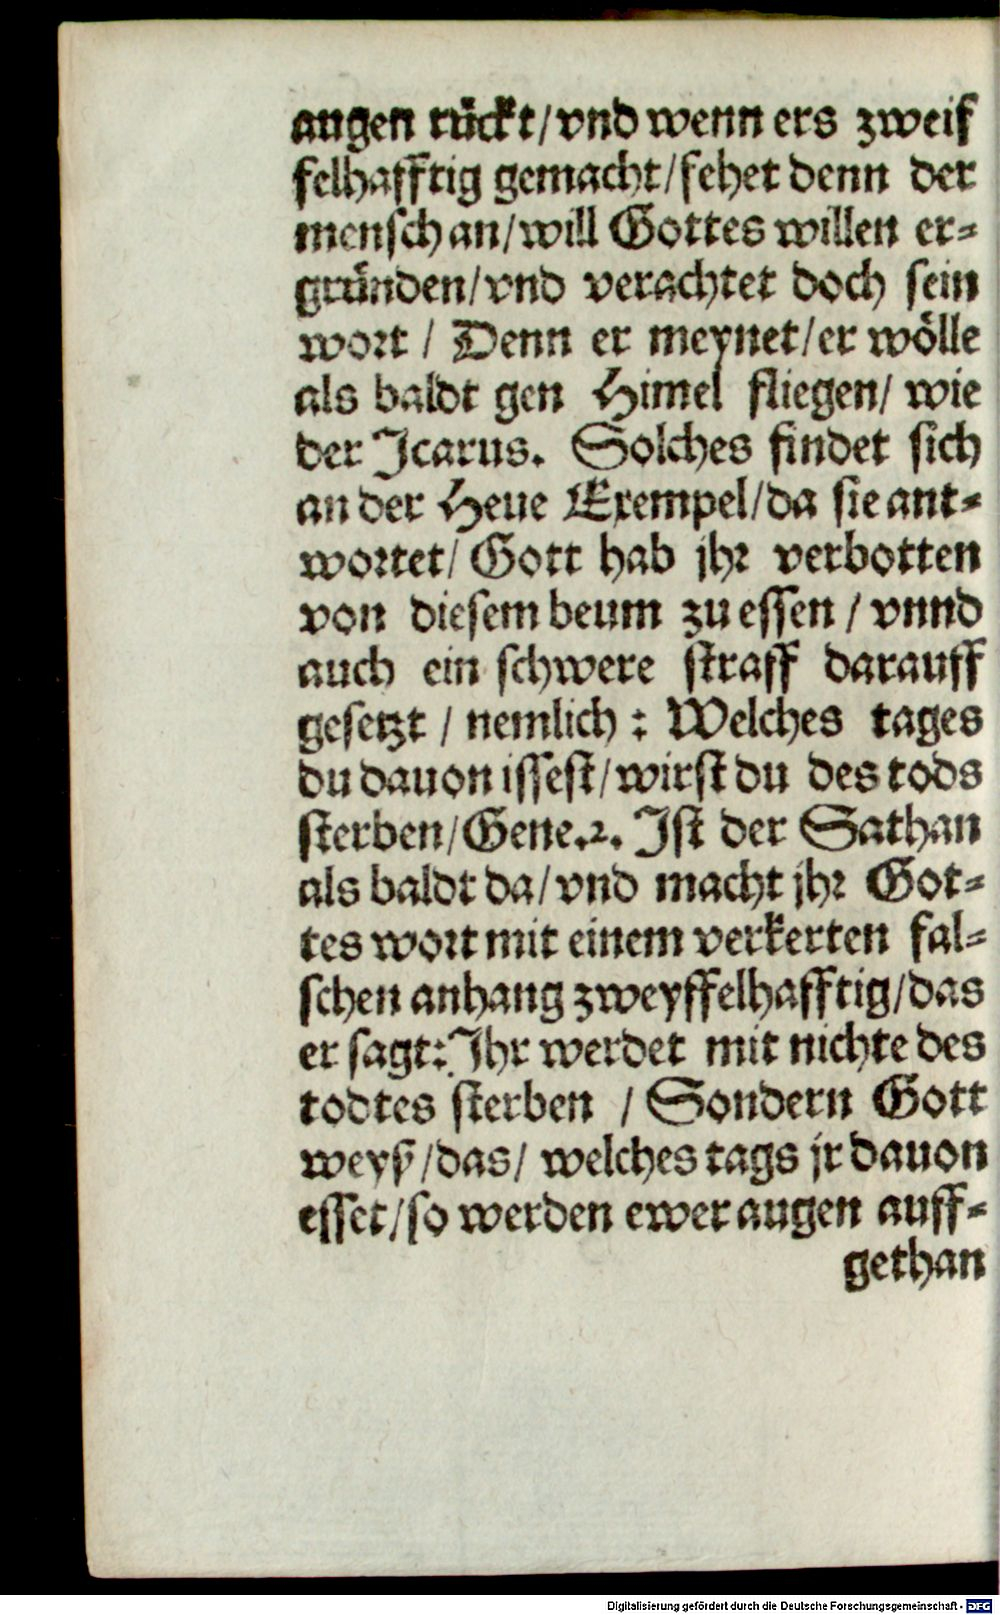 augen rückt/ vnd wenn ers zweif
felhafftig gemacht/ fehet denn der
mensch an/ will Gottes willen er-
gründen/ vnd verachtet doch sein
wort / Denn er meynet/ er wölle
als baldt gen Himel fliegen/ wie
der Icarus. Solches findet sich
an der Heue Exempel/ da sie ant-
wortet/ Gott hab jhr verbotten
von diesem beum zu essen / vnnd
auch ein schwere straff darauff
gesetzt / nemlich : Welches tages
du dauon issest/ wirst du des tods
sterben/ Gene.2. Ist der Sathan
als baldt da/ vnd macht jhr Got-
tes wort mit einem verkerten fal-
schen anhang zweyffelhafftig/ das
er sagt: Ihr werdet mit nichte des
todtes sterben / Sondern Gott
weyß/ das/ welches tags jr dauon
esset/ so werden ewer augen auff-
gethan
Digitalisierung gefördert durch die Deutsche Forschungsgemeinschaft - DFG